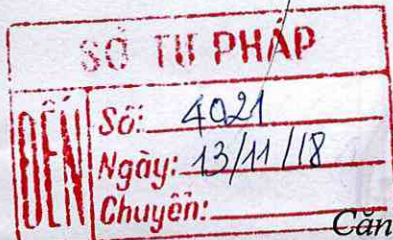 SỞ TƯ PHÁP
ĐẾN
Số: 4021
Ngày: 13/11/18
Chuyển:
Căn